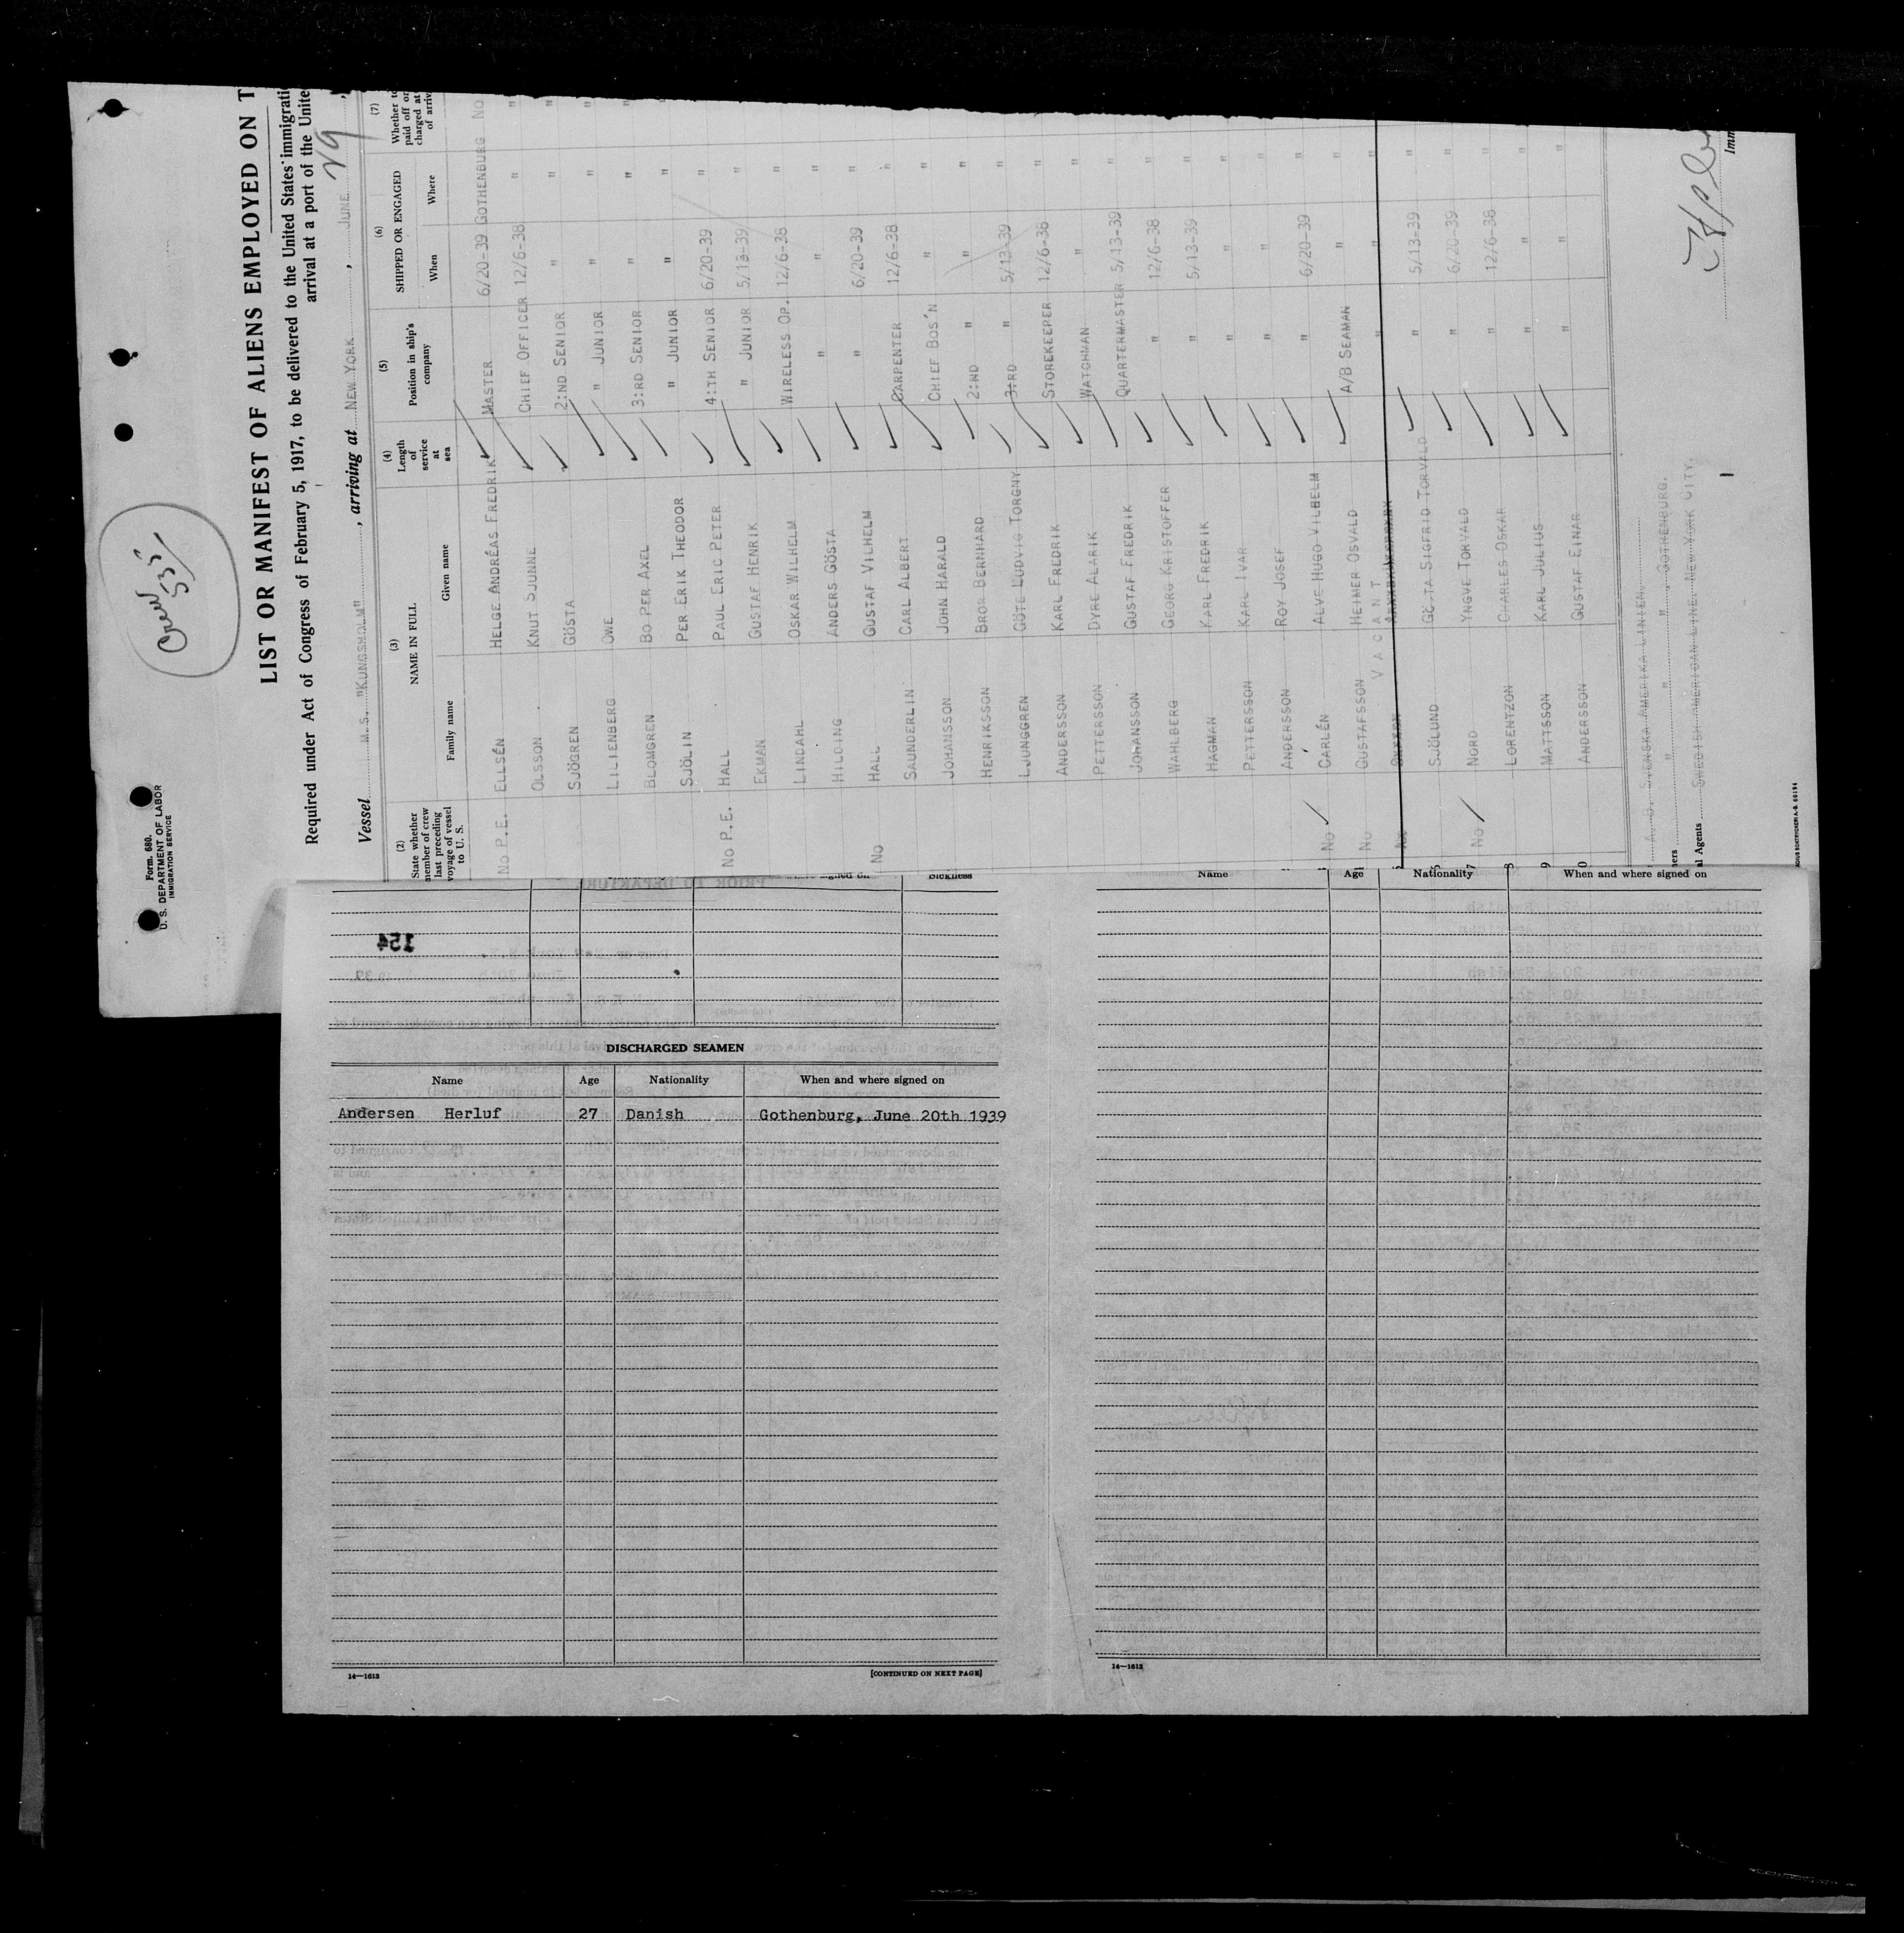 Form. 680.
U. S. DEPARTMENT OF LABOR
IMMIGRATION SERVICE
Crew 535
LIST OR MANIFEST OF ALIENS EMPLOYED ON T
Required under Act of Congress of February 5, 1917, to be delivered to the United States immigrati
arrival at a port of the Unite
Vessel M.S. "KUNGSHOLM", arriving at NEW YORK, JUNE 29,
(2) State whether member of crew last preceding voyage of vessel to U. S.
(3) NAME IN FULL
Family name Given name
(4) Length of service at sea
(5) Position in ship's company
(6) SHIPPED OR ENGAGED
When Where
(7) Whether to paid off or charged at of arriv
NO P.E. ELLSÉN HELGE ANDRÉAS FREDRIK MASTER 6/20-39 GOTHENBURG NO
OLSSON KNUT SJUNNE CHIEF OFFICER 12/6-38 " "
SJÖGREN GÖSTA 2:ND SENIOR " " "
LILIENBERG OWE " JUNIOR " " "
BLOMGREN BO PER AXEL 3:RD SENIOR " " "
SJÖLIN PER ERIK THEODOR " JUNIOR " " "
NO P.E. HALL PAUL ERIC PETER 4:TH SENIOR 6/20-39 "
EKMAN GUSTAF HENRIK " JUNIOR 5/13-39 "
LINDAHL OSKAR WILHELM WIRELESS OP. 12/6-38 "
HILDING ANDERS GÖSTA " " "
NO HALL GUSTAF VILHELM " 6/20-39 "
SAUNDERLIN CARL ALBERT CARPENTER 12/6-38 "
JOHANSSON JOHN HARALD CHIEF BOS'N " "
HENRIKSSON BROR BERNHARD 2:ND " " "
LJUNGGREN GÖTE LUDVIG TORGNY 3:RD " 5/13-39 "
ANDERSSON KARL FREDRIK STOREKEEPER 12/6-38 "
PETTERSSON DYRE ALARIK WATCHMAN " "
JOHANSSON GUSTAF FREDRIK QUARTERMASTER 5/13-39 "
WAHLBERG GEORG KRISTOFFER " 12/6-38 "
HAGMAN KARL FREDRIK " 5/13-39 "
PETTERSSON KARL IVAR " " "
ANDERSSON ROY JOSEF " " "
NO CARLÉN ALVE HUGO VILHELM " 6/20-39 "
NO GUSTAFSSON HEIMER OSVALD A/B SEAMAN " "
VACANT " " "
6 SJÖLUND GÖSTA SIGFRID TORVALD " 5/13-39 "
7 NO NORD YNGVE TORVALD " 6/20-39 "
8 LORENTZON CHARLES OSKAR " 12/6-38 "
9 MATTSSON KARL JULIUS " " "
0 ANDERSSON GUSTAF EINAR " " "
A.B. SVENSKA AMERIKA LINIEN
ners " " " , GOTHENBURG.
al Agents SWEDISH AMERICAN LINE, NEW YORK CITY.
Imm
Sickness
154
DISCHARGED SEAMEN
Name Age Nationality When and where signed on
Andersen Herluf 27 Danish Gothenburg, June 20th 1939
14—1613
[CONTINUED ON NEXT PAGE]
Name Age Nationality When and where signed on
14—1613